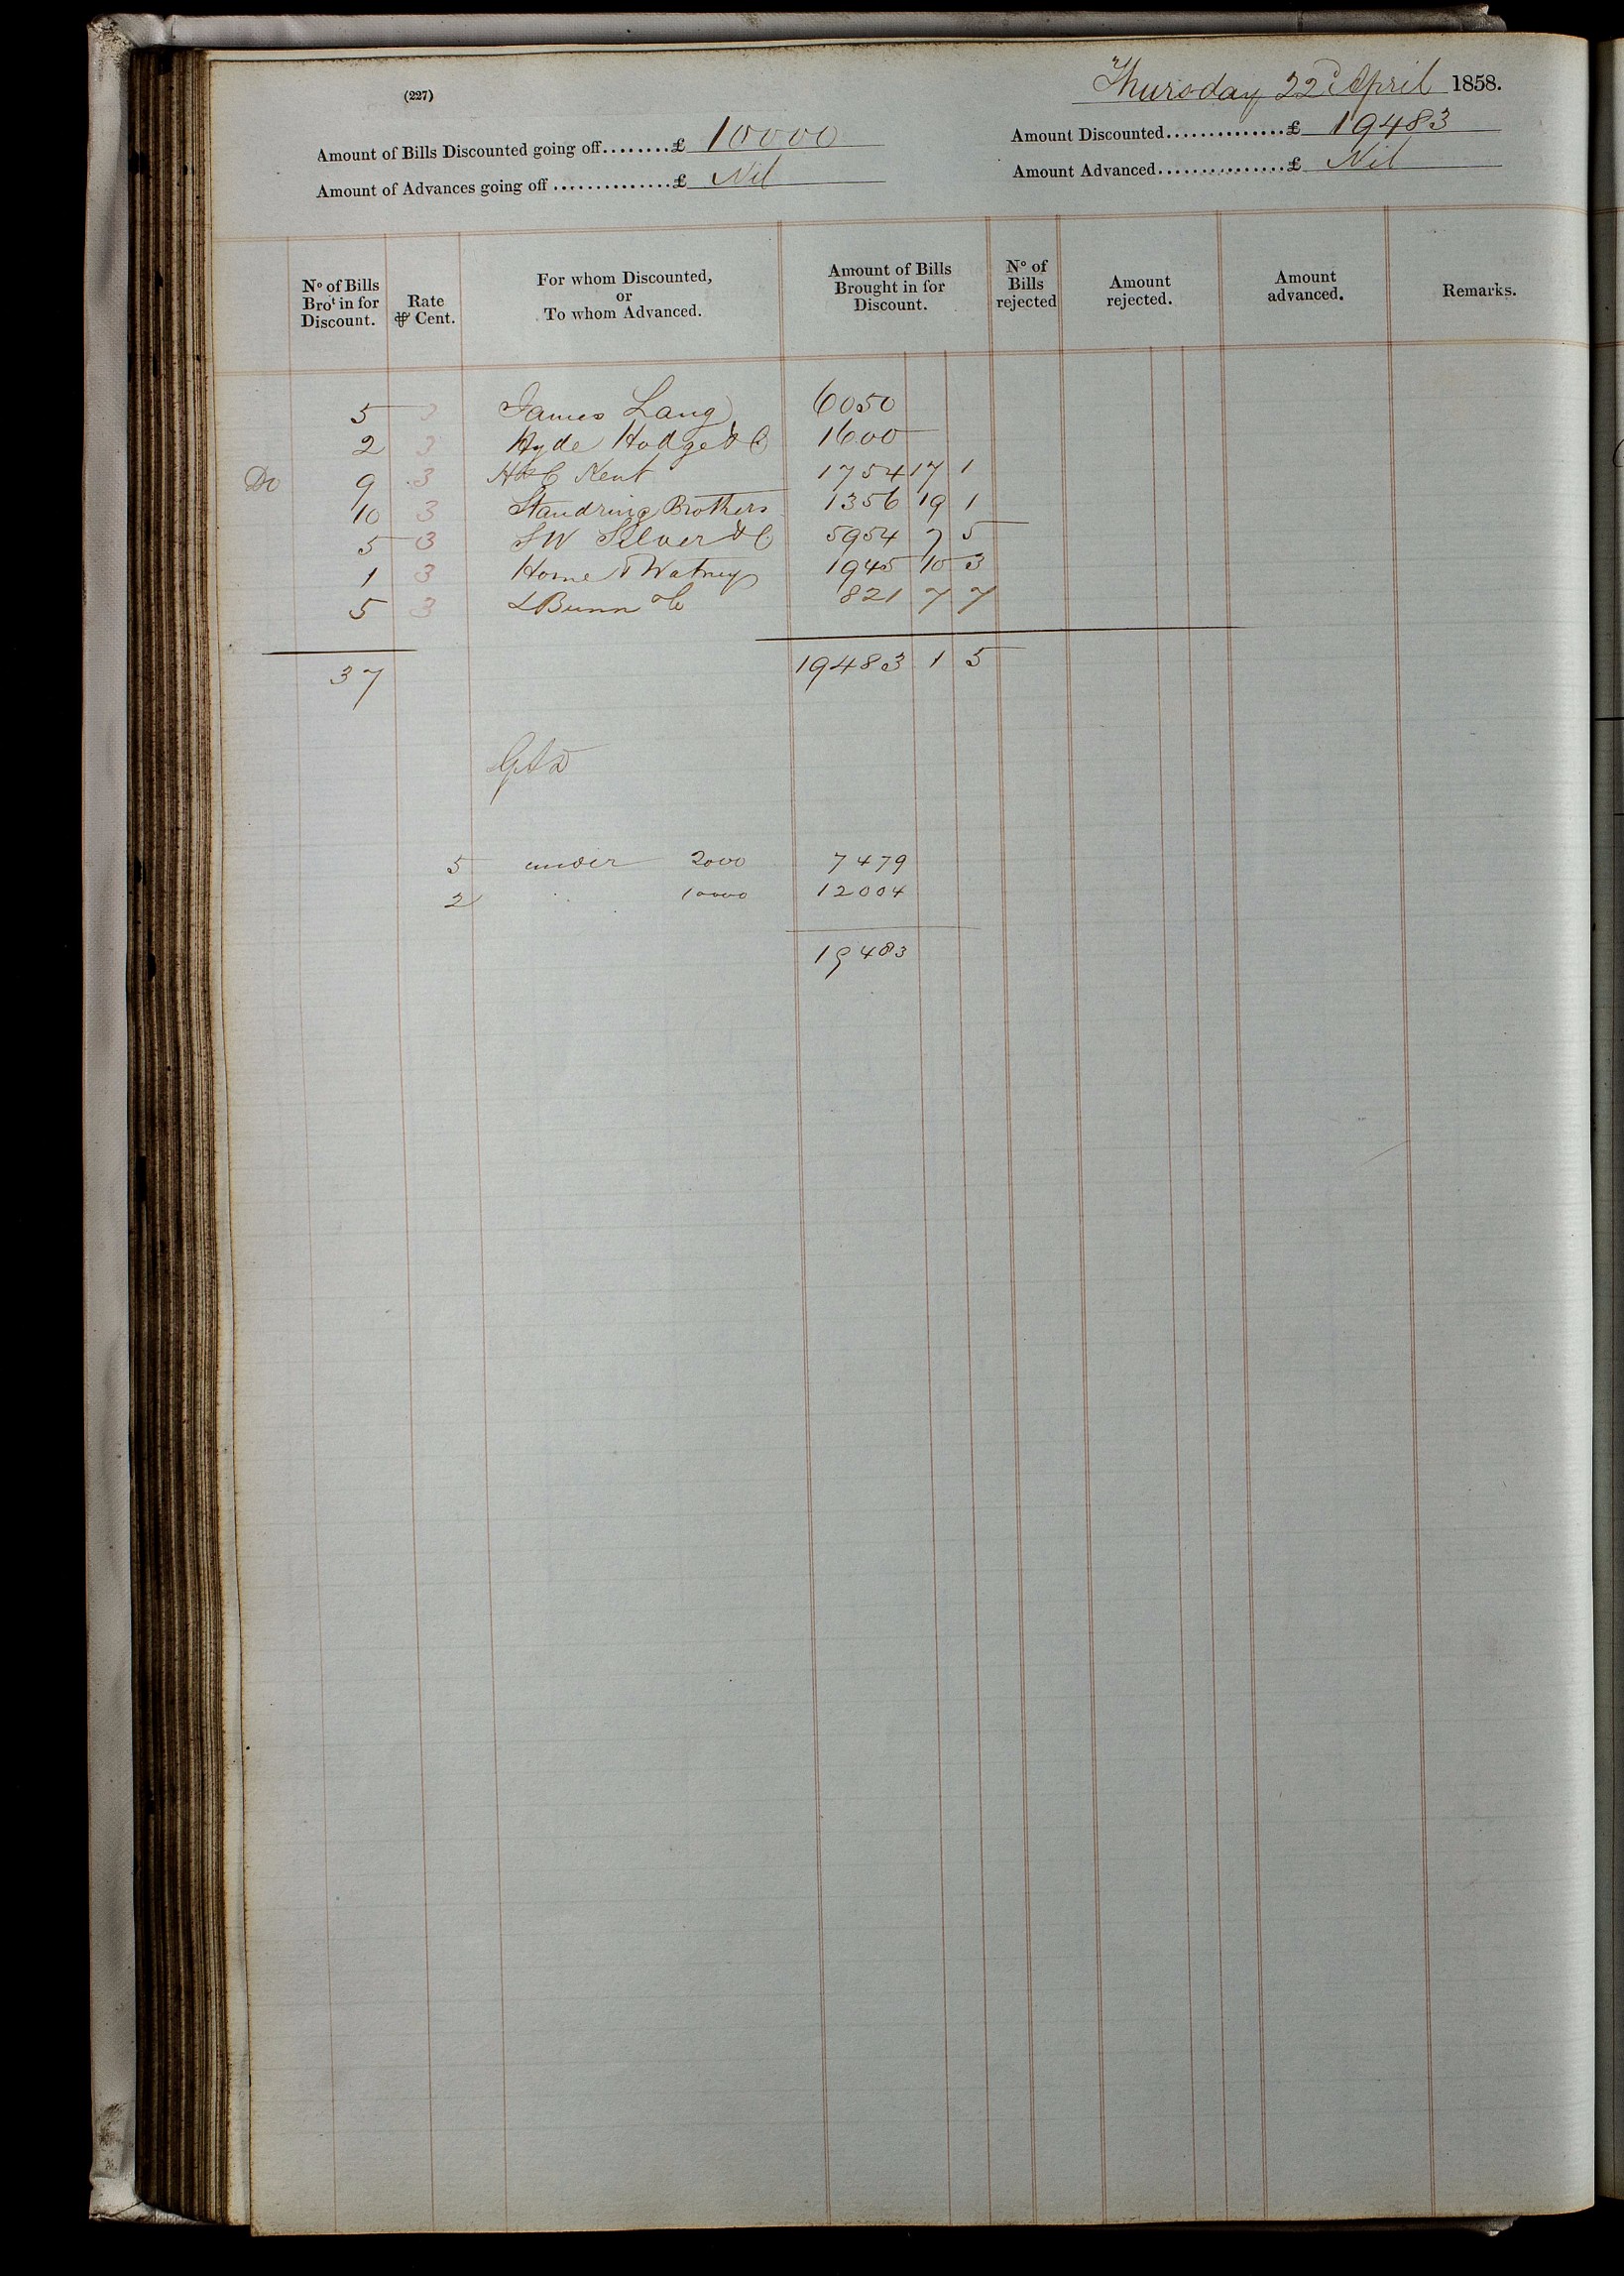 (227)
Thursday 22d April 1858.
Amount of Bills Discounted going off........£ 10000
Amount Discounted..............£ 19483
Amount of Advances going off..............£ Nil
Amount Advanced...............£ Nil
No of Bills Brot in for Discount.
Rate ⅌ Cent.
For whom Discounted, or To whom Advanced.
Amount of Bills Brought in for Discount.
No of Bills rejected
Amount rejected.
Amount advanced.
Remarks.
5 3 James Lang 6050
2 3 Hyde Hodge & C 1600
Do 9 3 H & C Kent 1754 17 1
10 3 Standring Brothers 1356 19 1
5 3 SW Silver & C 5954 7 5
1 3 Horne & Watney 1945 10 3
5 3 L Bunn & Co 821 7 7
37 19483 1 5
5 under 2000 7479
2 " 10000 12004
19483